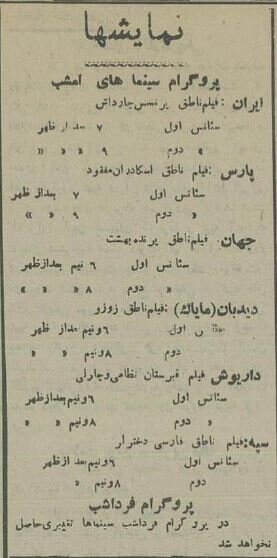 نمایشها
پروگرام سینما های امشب
ایران : فیلم ناطق پرنسس چارداش
سئانس اول ۷ بعد از ظهر
« دوم ۹ « « «
پارس : فیلم ناطق اسکادران مفقود
سئانس اول ۷ بعد از ظهر
« دوم ۹ « «
جهان : فیلم ناطق پرنده بهشت
سئانس اول ۶ نیم بعد از ظهر
« دوم ۸ « « «
دیدبان (مایاک) : فیلم ناطق زوزو
اول ۶ ونیم بعد از ظهر
دوم ۸ ونیم « «
داریوش فیلم قبرستان نظامی وچارلی
سئانس اول ۶ ونیم بعد از ظهر
« دوم ۸ ونیم « «
سپه : فیلم ناطق فارسی دختر لر
سئانس اول ۶ ونیم بعد از ظهر
« دوم ۸ ونیم « «
پروگرام فرداشب
در پروگرام فرداشب سینماها تغییری حاصل
نخواهد شد